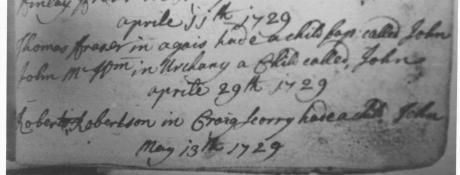 Finlay Fraser
aprile 11th 1729
Thomas Fraser in agais hade a child bap: called John
John Mc Wm in Urchany a Child called, John
aprile 29th 1729
Robert Robertson in Craigscorry hade a child John
May 13th 1729